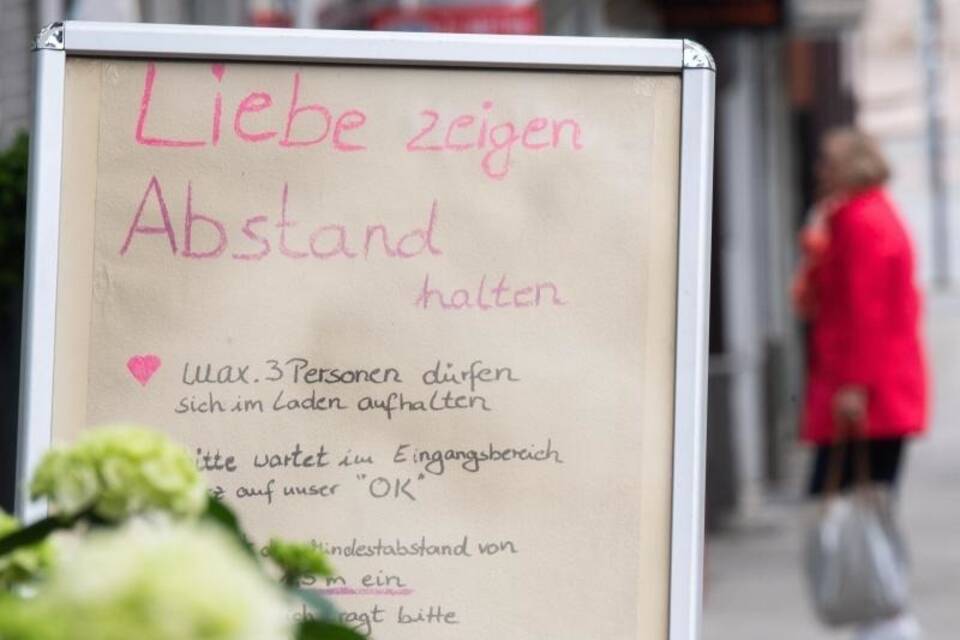 Liebe zeigen
Abstand
halten
Max. 3 Personen dürfen
sich im Laden aufhalten
itte wartet im Eingangsbereich
z auf unser "OK"
Mindestabstand von
5 m ein
bitte